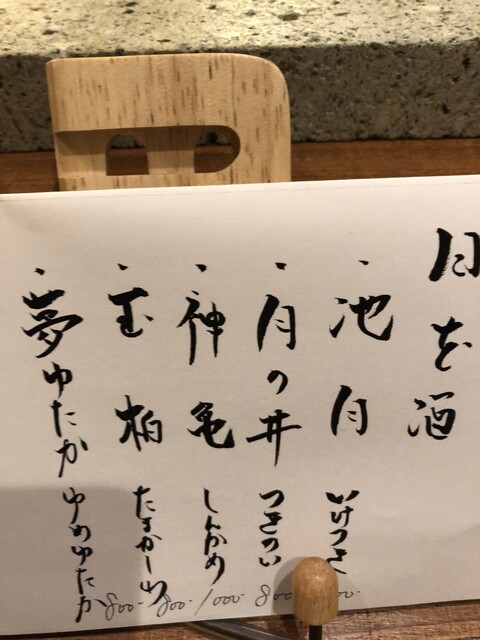 日を酒
池月 いけつき
月の井 つきのい 800.
神亀 しんかめ 1000.
玉柏 たまかしわ 800.
夢ゆたか ゆめゆたか 800.